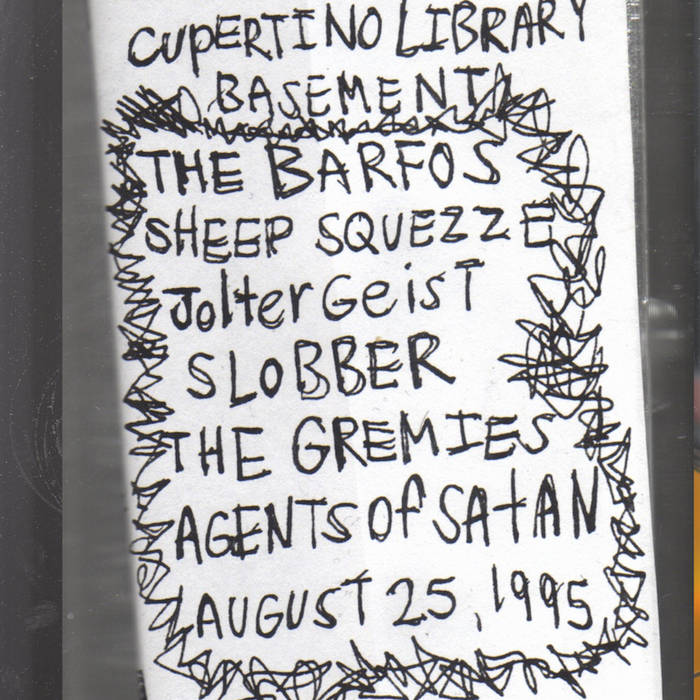 CUPERTINO LIBRARY
BASEMENT
THE BARFOS
SHEEP SQUEZZE
JolterGeist
SLOBBER
THE GREMIES
AGENTS of SAtAN
AUGUST 25, 1995